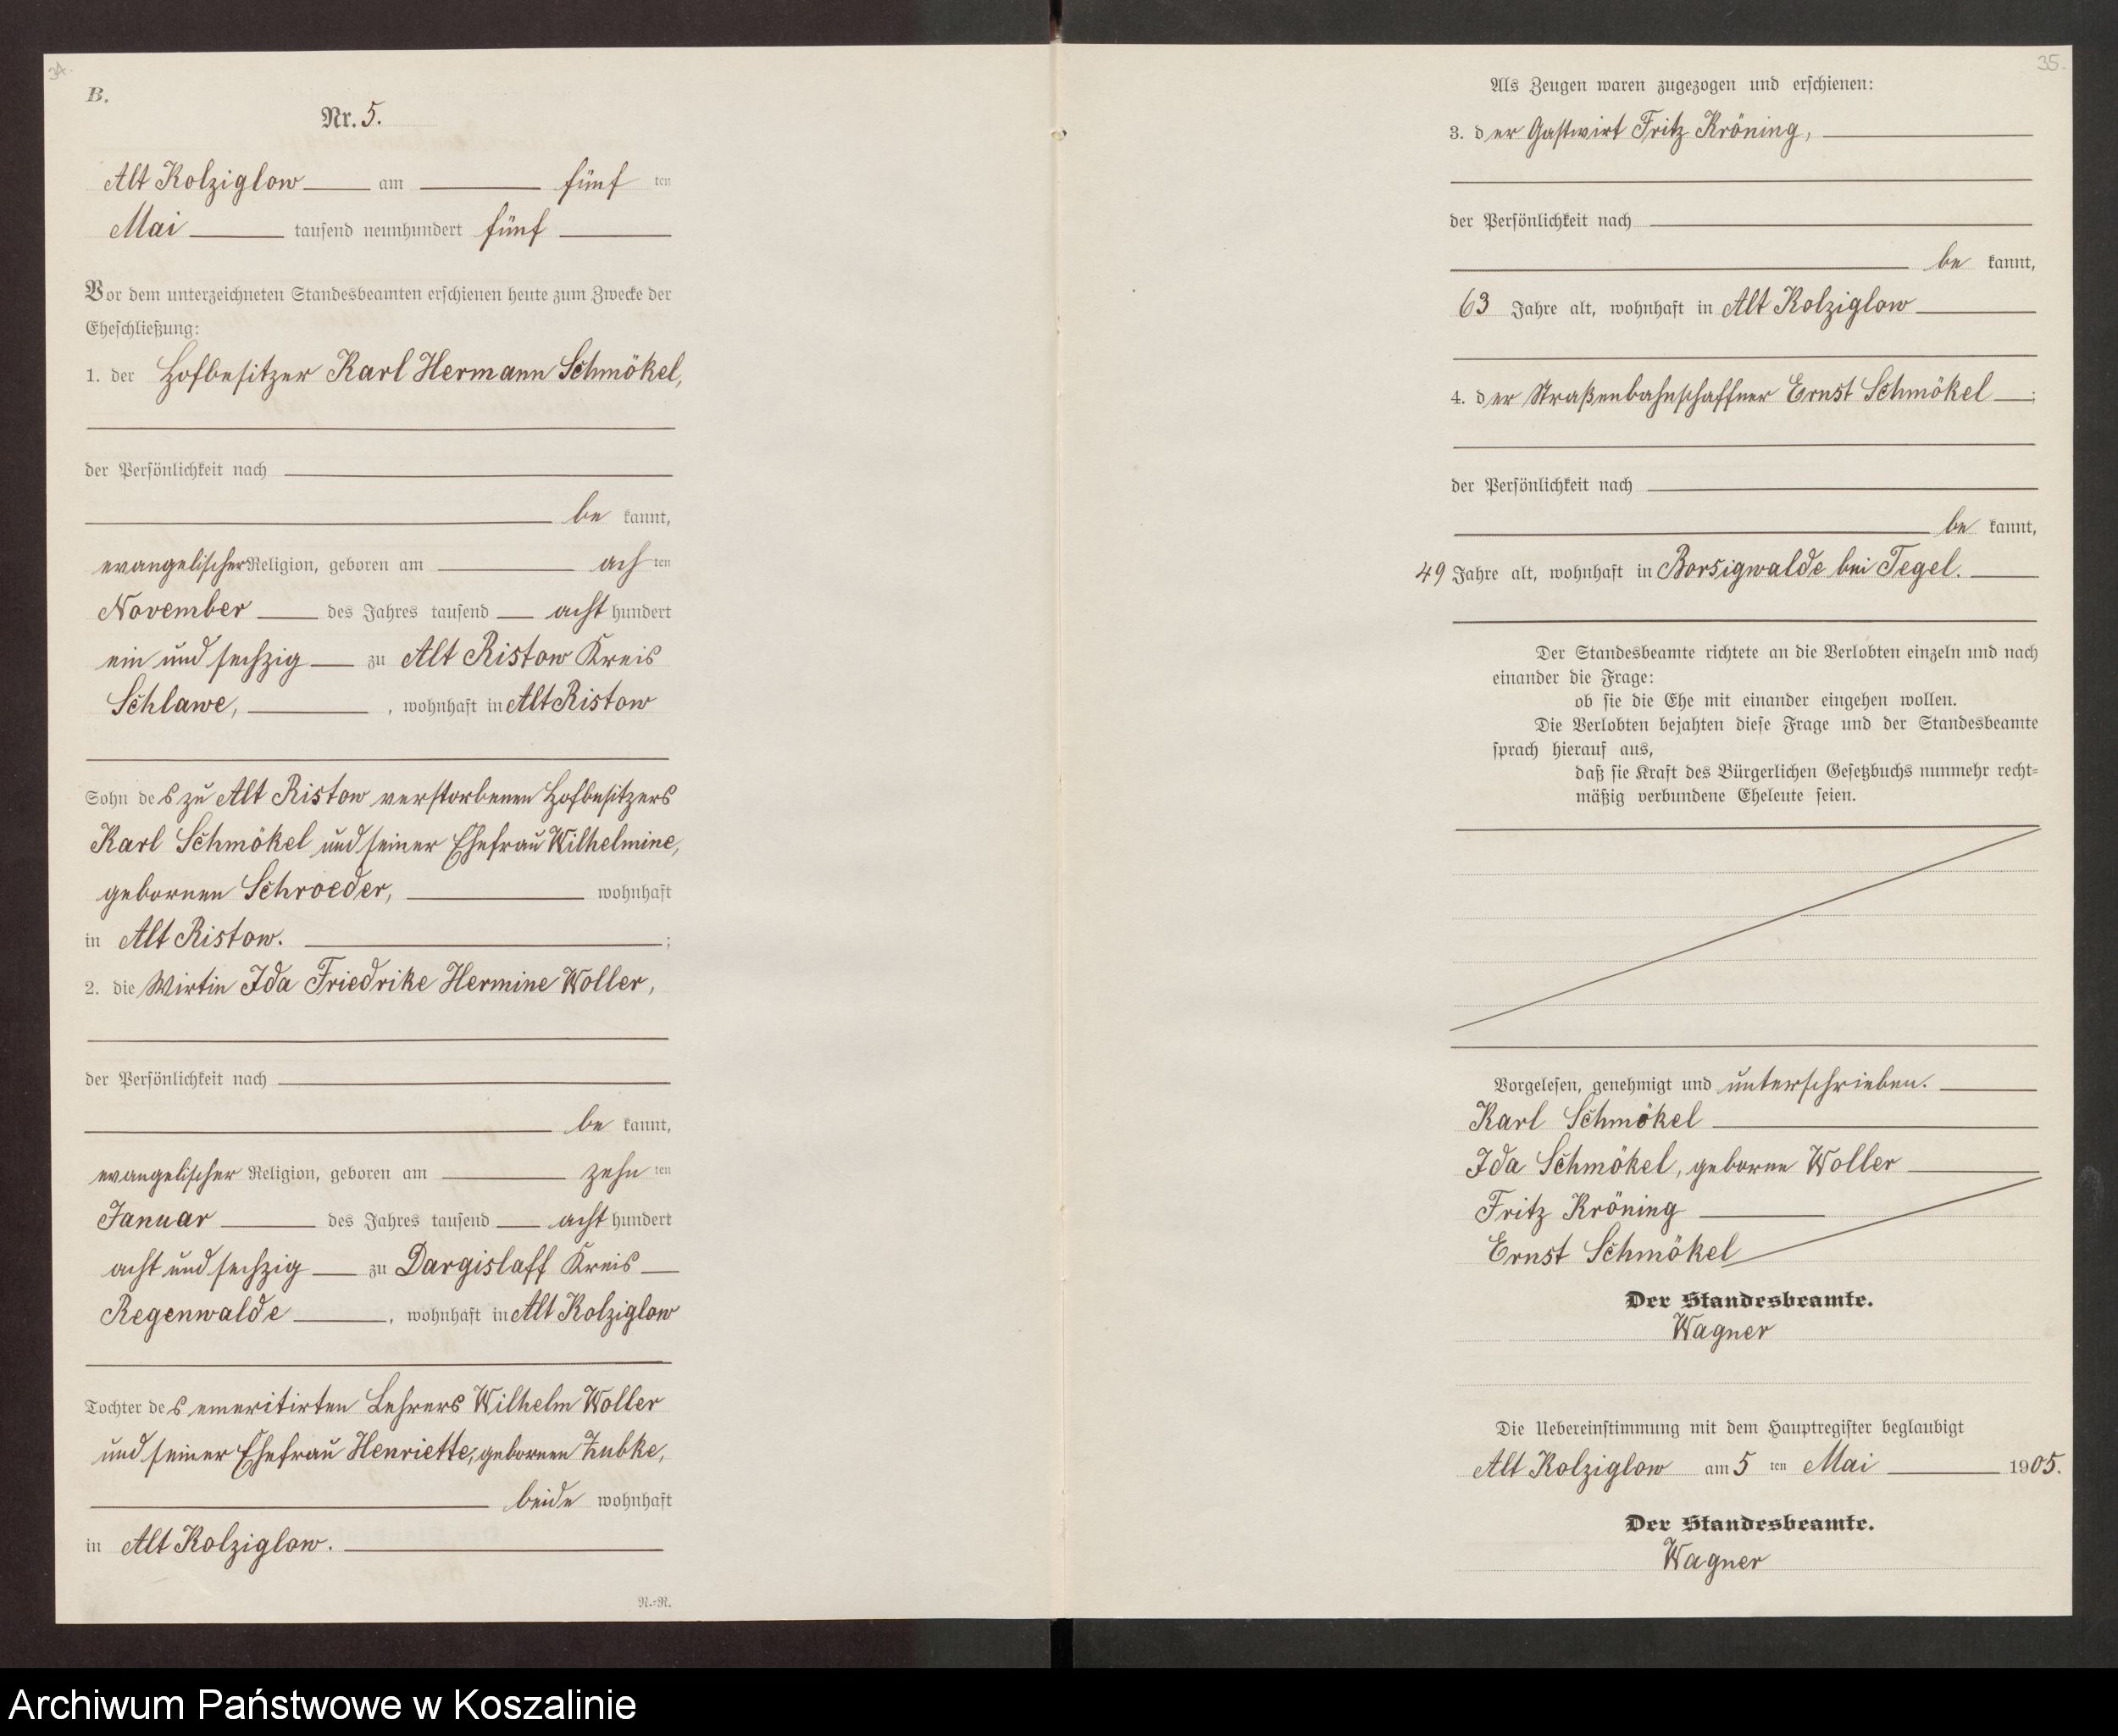 34.
B.
Nr. 5.
Alt Kolziglow am fünf ten
Mai tausend neunhundert fünf
Vor dem unterzeichneten Standesbeamten erschienen heute zum Zwecke der
Eheschließung:
1. der Hofbesitzer Karl Hermann Schmökel,
der Persönlichkeit nach
be kannt,
evangelischer Religion, geboren am ach ten
November des Jahres tausend acht hundert
ein und sechzig zu Alt Ristow Kreis
Schlawe, , wohnhaft in Alt Ristow
Sohn des zu Alt Ristow verstorbenen Hofbesitzers
Karl Schmökel und seiner Ehefrau Wilhelmine,
gebornen Schroeder, wohnhaft
in Alt Ristow. ;
2. die Wirtin Ida Friedrike Hermine Woller,
der Persönlichkeit nach
be kannt,
evangelischer Religion, geboren am zehn ten
Januar des Jahres tausend acht hundert
acht und sechzig zu Dargislaff Kreis
Regenwalde , wohnhaft in Alt Kolziglow
Tochter des emeritirten Lehrers Wilhelm Woller
und seiner Ehefrau Henriette, gebornen Zubke,
beide wohnhaft
in Alt Kolziglow.
N.-N.
35.
Als Zeugen waren zugezogen und erschienen:
3. der Gastwirt Fritz Kröning,
der Persönlichkeit nach
be kannt,
63 Jahre alt, wohnhaft in Alt Kolziglow
4. der Straßenbahnschaffner Ernst Schmökel ;
der Persönlichkeit nach
be kannt,
49 Jahre alt, wohnhaft in Borsigwalde bei Tegel.
Der Standesbeamte richtete an die Verlobten einzeln und nach
einander die Frage:
ob sie die Ehe mit einander eingehen wollen.
Die Verlobten bejahten diese Frage und der Standesbeamte
sprach hierauf aus,
daß sie Kraft des Bürgerlichen Gesetzbuchs nunmehr recht-
mäßig verbundene Eheleute seien.
Vorgelesen, genehmigt und unterschrieben.
Karl Schmökel
Ida Schmökel, geborne Woller
Fritz Kröning
Ernst Schmökel
Der Standesbeamte.
Wagner
Die Uebereinstimmung mit dem Hauptregister beglaubigt
Alt Kolziglow am 5 ten Mai 1905.
Der Standesbeamte.
Wagner
Archiwum Państwowe w Koszalinie